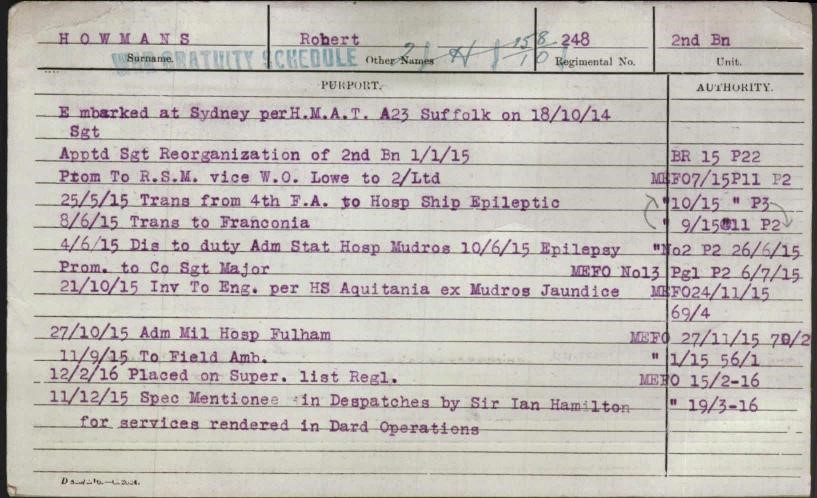 HOWMANS Robert 248 2nd Bn
WAR GRATUITY SCHEDULE
Surname. Other Names Regimental No. Unit.
PURPORT. AUTHORITY.
E mbarked at Sydney perH.M.A.T. A23 Suffolk on 18/10/14
Sgt
Apptd Sgt Reorganization of 2nd Bn 1/1/15 BR 15 P22
Prom To R.S.M. vice W.O. Lowe to 2/Ltd MEFO7/15P11 P2
25/5/15 Trans from 4th F.A. to Hosp Ship Epileptic "10/15 " P3
8/6/15 Trans to Franconia " 9/15 11 P2
4/6/15 Dis to duty Adm Stat Hosp Mudros 10/6/15 Epilepsy "No2 P2 26/6/15
Prom. to Co Sgt Major MEFO No13 Pg1 P2 6/7/15
21/10/15 Inv To Eng. per HS Aquitania ex Mudros Jaundice MEFO24/11/15
69/4
27/10/15 Adm Mil Hosp Fulham MEFO 27/11/15 70/2
11/9/15 To Field Amb. " 1/15 56/1
12/2/16 Placed on Super. list Regl. MEFO 15/2-16
11/12/15 Spec Mentionee in Despatches by Sir Ian Hamilton " 19/3-16
for services rendered in Dard Operations